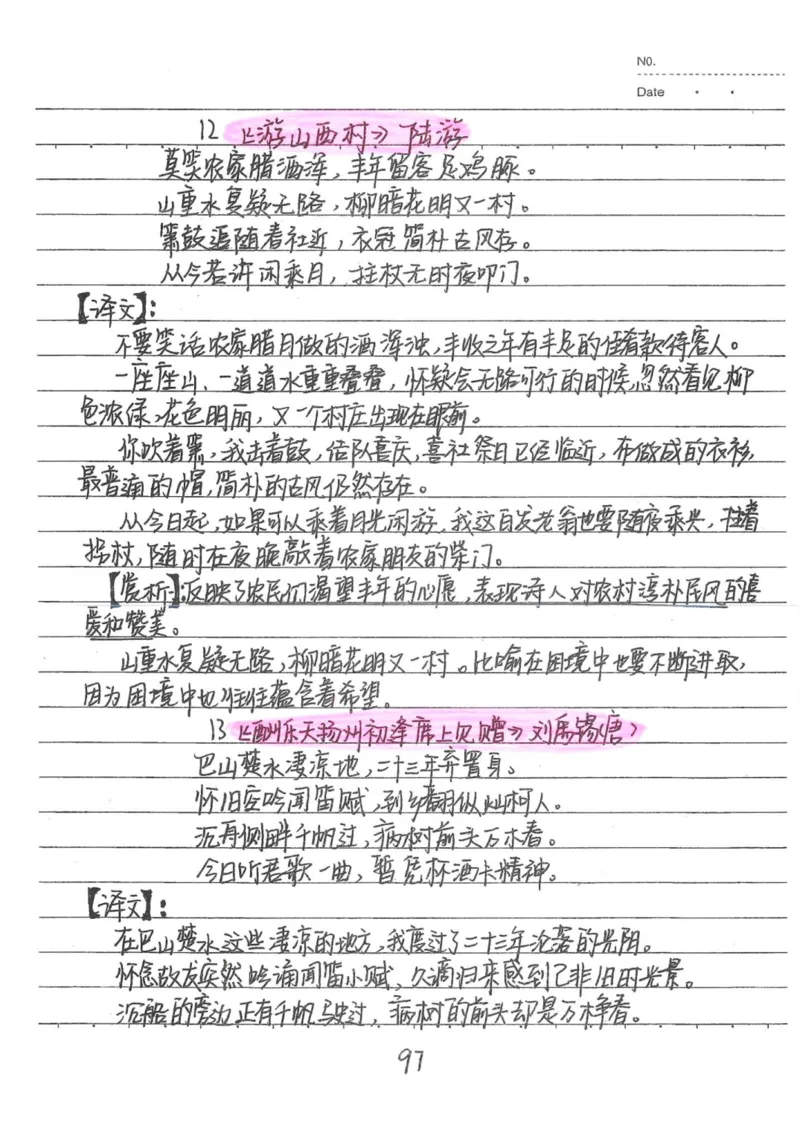 NO.
Date
12 《游山西村》陆游
莫笑农家腊酒浑，丰年留客足鸡豚。
山重水复疑无路，柳暗花明又一村。
箫鼓追随春社近，衣冠简朴古风存。
从今若许闲乘月，拄杖无时夜叩门。
【译文】：
不要笑话农家腊月做的酒浑浊，丰收之年有丰足的佳肴款待客人。
一座座山、一道道水重重叠叠，怀疑会无路可行的时候，忽然看见柳
色浓绿，花色明丽，又一个村庄出现在眼前。
你吹着箫，我击着鼓，结队喜庆，喜社祭日已经临近，布做成的衣衫，
最普通的帽，简朴的古风仍然存在。
从今日起，如果可以乘着月光闲游，我这白发老翁也要随夜乘兴，拄着
拐杖，随时在夜晚敲着农家朋友的柴门。
【赏析】：反映了农民们渴望丰年的心愿，表现诗人对农村淳朴民风的喜
爱和赞美。
山重水复疑无路，柳暗花明又一村。比喻在困境中也要不断进取，
因为困境中也往往蕴含着希望。
13《酬乐天扬州初逢席上见赠》刘禹锡（唐）
巴山楚水凄凉地，二十三年弃置身。
怀旧空吟闻笛赋，到乡翻似烂柯人。
沉舟侧畔千帆过，病树前头万木春。
今日听君歌一曲，暂凭杯酒长精神。
【译文】：
在巴山楚水这些凄凉的地方，我度过了二十三年沦落的光阴。
怀念故友突然吟诵闻笛小赋，久谪归来感到已非旧时光景。
沉船的旁边正有千帆驶过，病树的前头却是万林春。
97